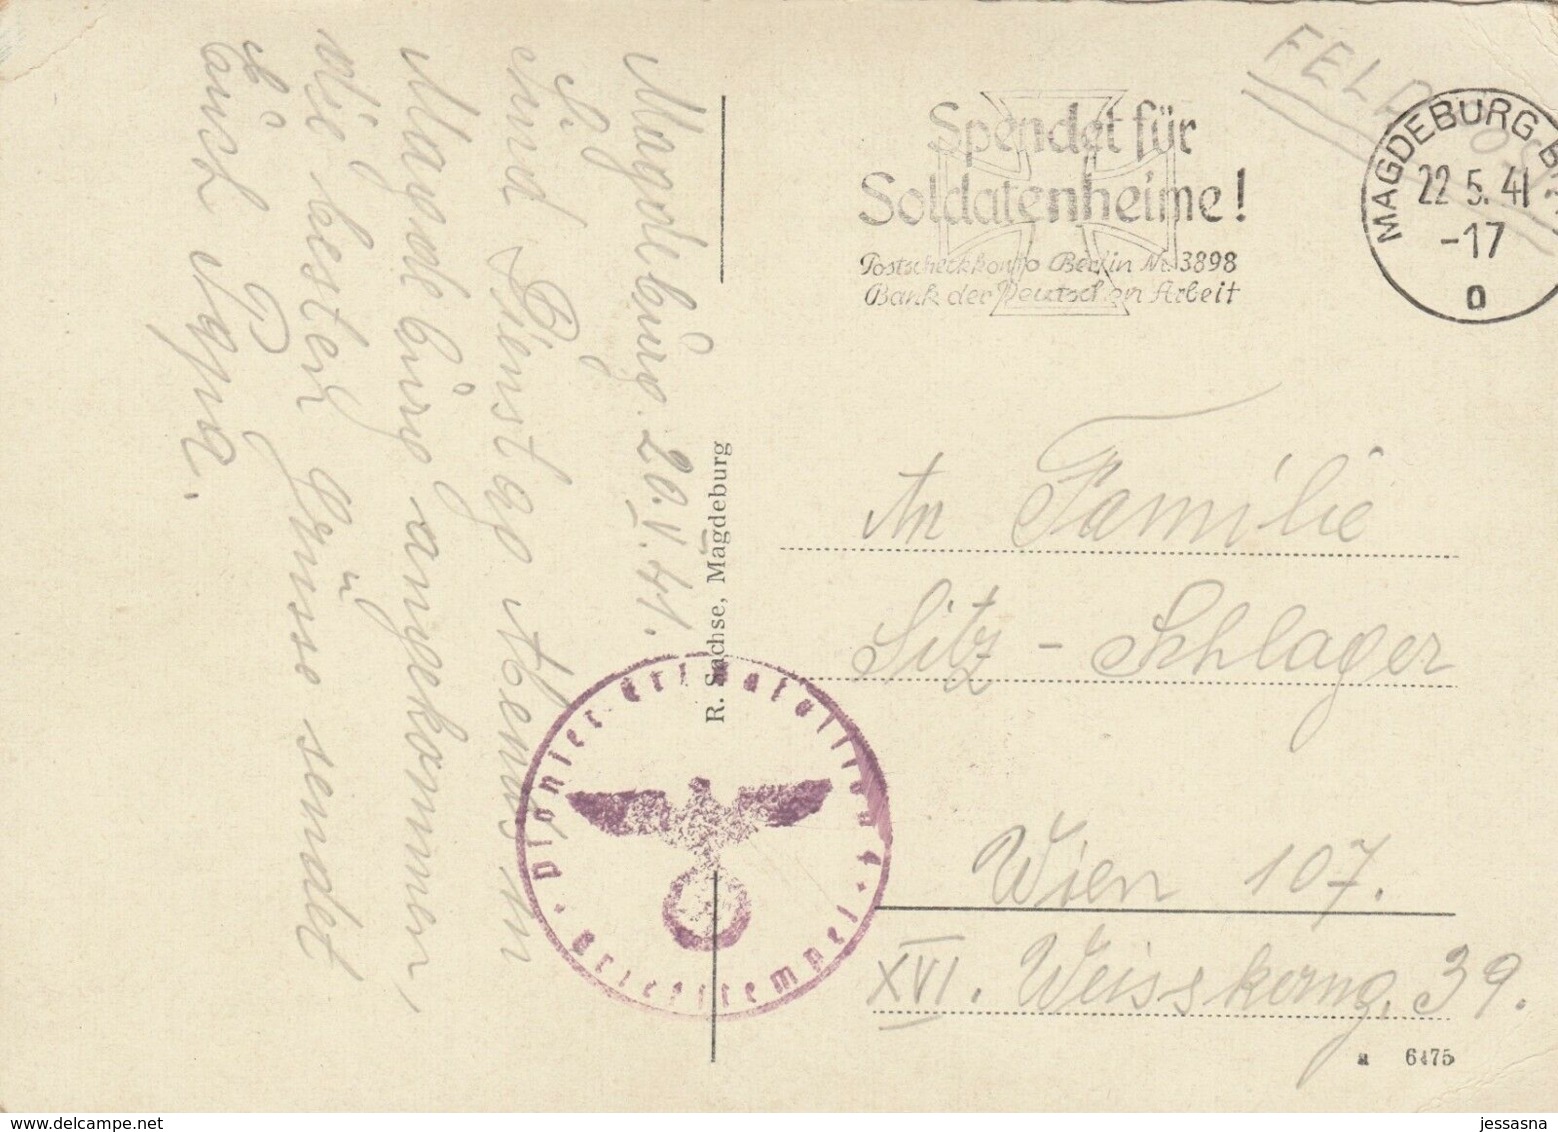 Magdeburg. 20.V.41.
Sind Dienstag Abend in
Magdeburg angekommen,
die besten Grüsse sendet
Euch Papa.
FELDPOST
Spendet für
Soldatenheime!
Postscheckkonto Berlin Nr. 3898
Bank der Deutschen Arbeit
MAGDEBURG-B
22.5.41
-17
R. Sachse, Magdeburg
Pionier-Ersatzbataillon 4
Briefstempel
An Familie
Sitz - Schlager
Wien 107.
XVI. Weisskerng. 39.
a 6475
www.delcampe.net
jessasna